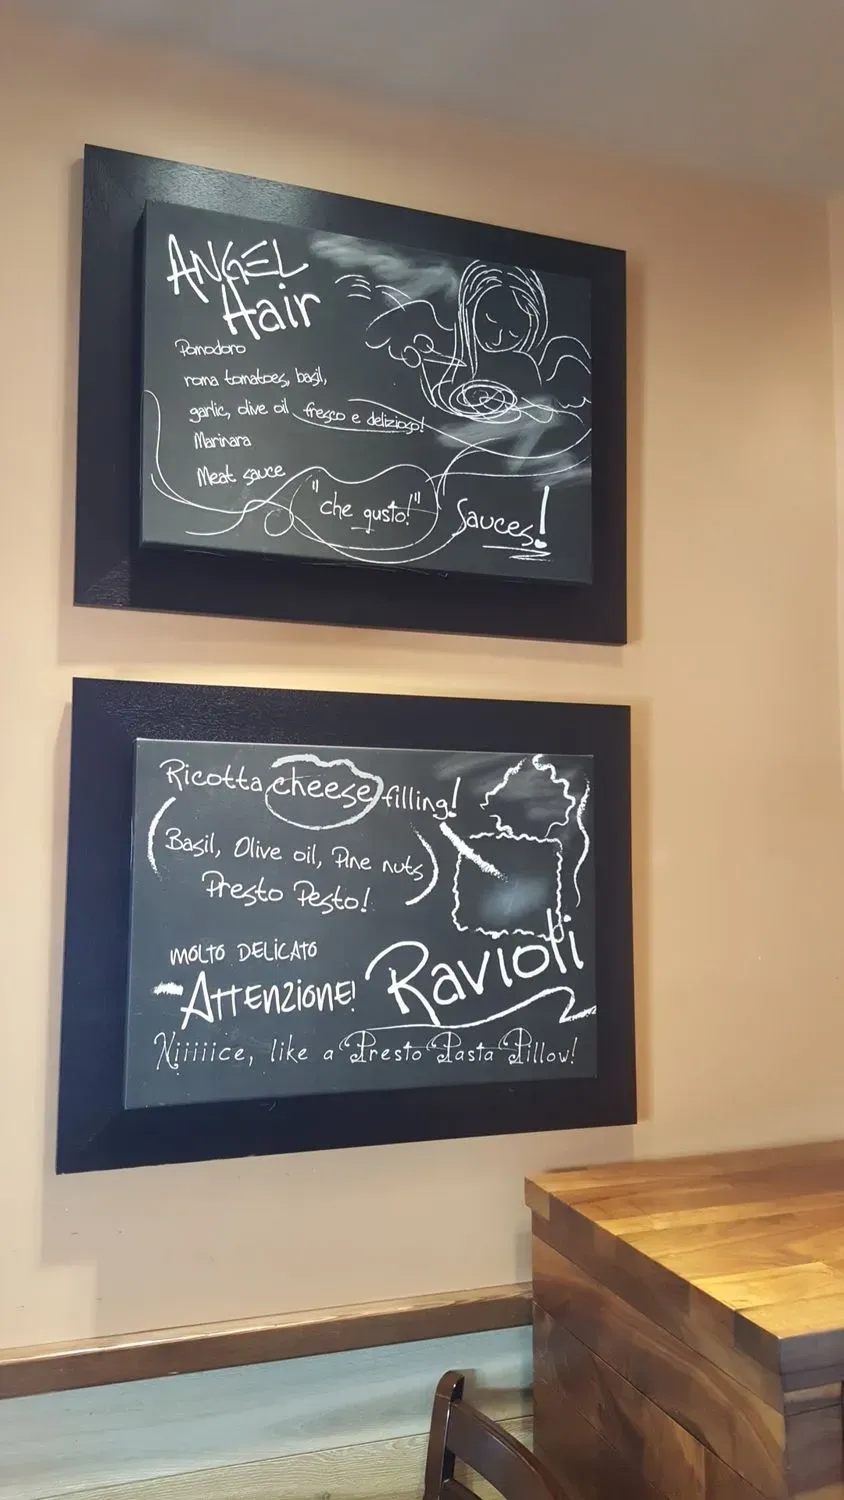 ANGEL
Hair
Pomodoro
roma tomatoes, basil,
garlic, olive oil fresco e delizioso!
Marinara
Meat sauce
"che gusto!" Sauces!
Ricotta cheese filling!
(Basil, Olive oil, Pine nuts)
Presto Pesto!
MOLTO DELICATO
ATTENZIONE!
Ravioli
Niiiiice, like a Presto Pasta Pillow!